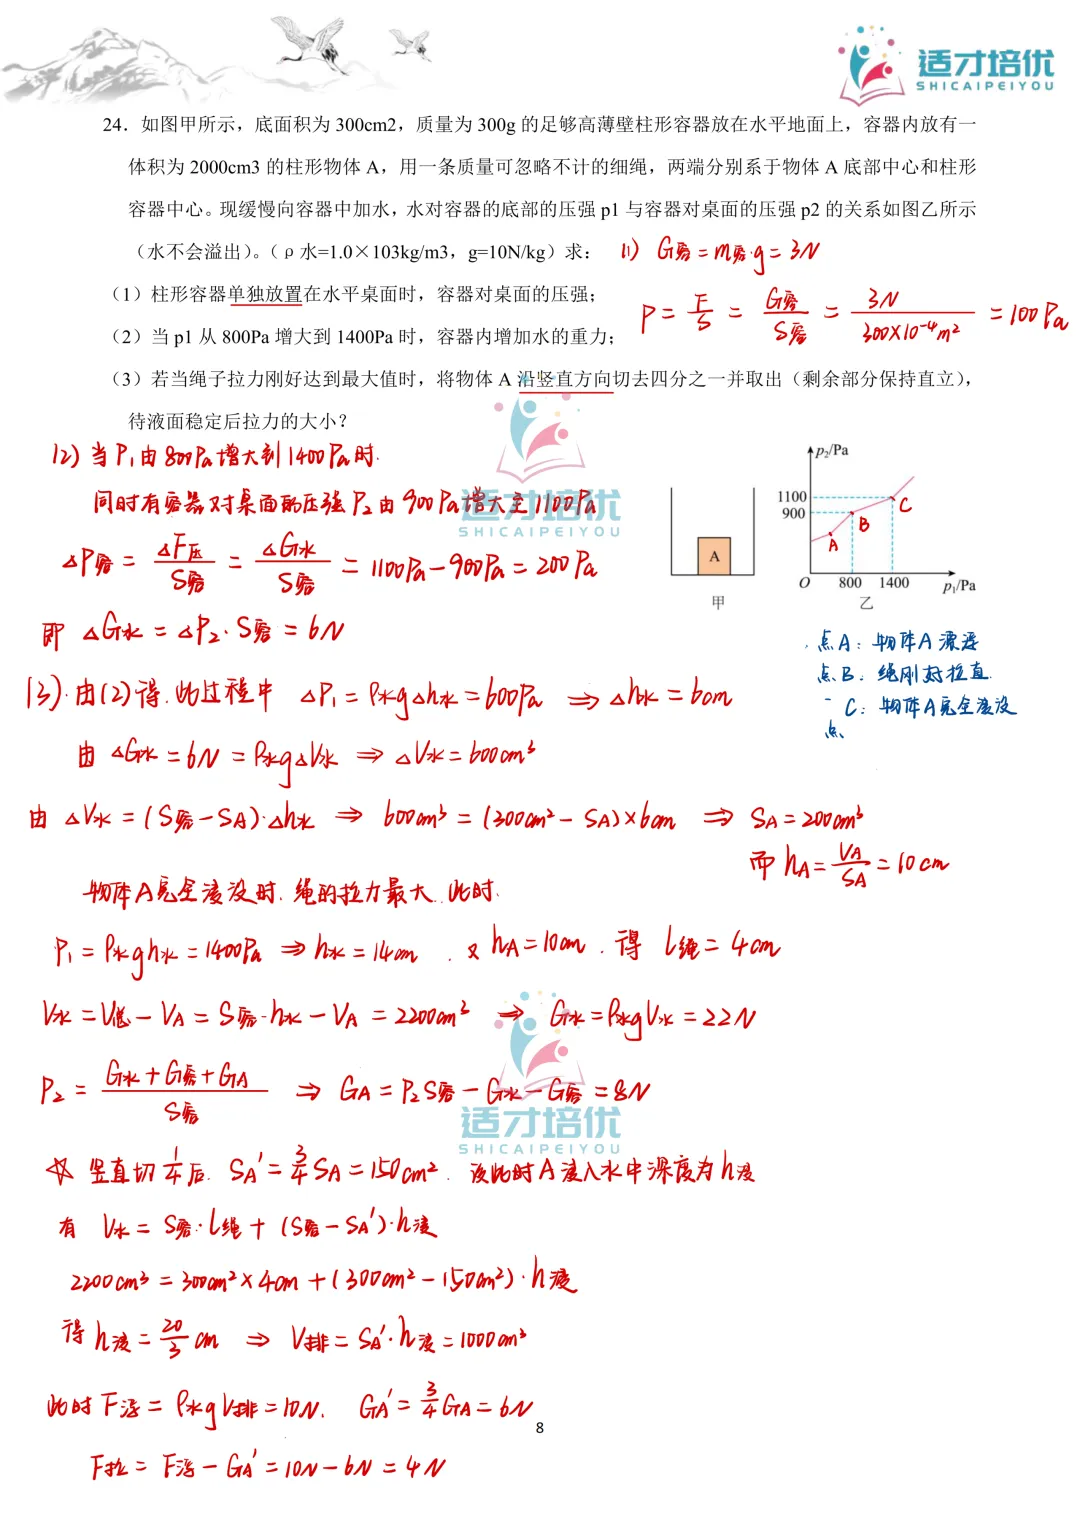 适才培优
SHICAIPEIYOU
24．如图甲所示，底面积为 300cm2，质量为 300g 的足够高薄壁柱形容器放在水平地面上，容器内放有一
体积为 2000cm3 的柱形物体 A，用一条质量可忽略不计的细绳，两端分别系于物体 A 底部中心和柱形
容器中心。现缓慢向容器中加水，水对容器的底部的压强 p1 与容器对桌面的压强 p2 的关系如图乙所示
（水不会溢出）。（ρ水=1.0×103kg/m3，g=10N/kg）求：
(1) G容=m容·g=3N
（1）柱形容器单独放置在水平桌面时，容器对桌面的压强；
P= F/S = G容/S容 = 3N/300×10⁻⁴m² =100Pa
（2）当 p1 从 800Pa 增大到 1400Pa 时，容器内增加水的重力；
（3）若当绳子拉力刚好达到最大值时，将物体 A 沿竖直方向切去四分之一并取出（剩余部分保持直立），
待液面稳定后拉力的大小?
(2) 当P₁由800Pa增大到1400Pa时.
同时有容器对桌面的压强P₂由900Pa增大至1100Pa
△P容= △F压/S容 = △G水/S容 =1100Pa-900Pa=200Pa
即 △G水=△P₂·S容=6N
p₂/Pa
1100
900
A
B
C
O
800
1400
p₁/Pa
A
甲
乙
点A：物体A漂浮
点B：绳刚好拉直
点C：物体A完全浸没
(3).由(2)得.此过程中 △P₁=ρ水g△h水=600Pa ⇒△h水=6cm
由 △G水=6N=ρ水g△V水 ⇒△V水=600cm³
由 △V水=(S容-SA)·△h水 ⇒ 600cm³=(300cm²-SA)×6cm ⇒ SA=200cm³
而 hA= VA/SA =10cm
物体A完全浸没时.绳的拉力最大.此时.
P₁=ρ水gh水=1400Pa ⇒h水=14cm . 又 hA=10cm . 得 l绳=4cm
V水=V总-VA=S容·h水-VA=2200cm³ ⇒ G水=ρ水gV水=22N
P₂= G水+G容+GA/S容 ⇒ GA=P₂S容-G水-G容=8N
适才培优
SHICAIPEIYOU
☆ 竖直切 1/4 后. SA'= 3/4 SA=150cm². 设此时A浸入水中深度为h浸
有 V水=S容·l绳+(S容-SA')·h浸
2200cm³=300cm²×4cm+(300cm²-150cm²)·h浸
得 h浸= 20/3 cm ⇒ V排=SA'·h浸=1000cm³
此时 F浮=ρ水gV排=10N. GA'= 3/4 GA=6N
8
F拉=F浮-GA'=10N-6N=4N